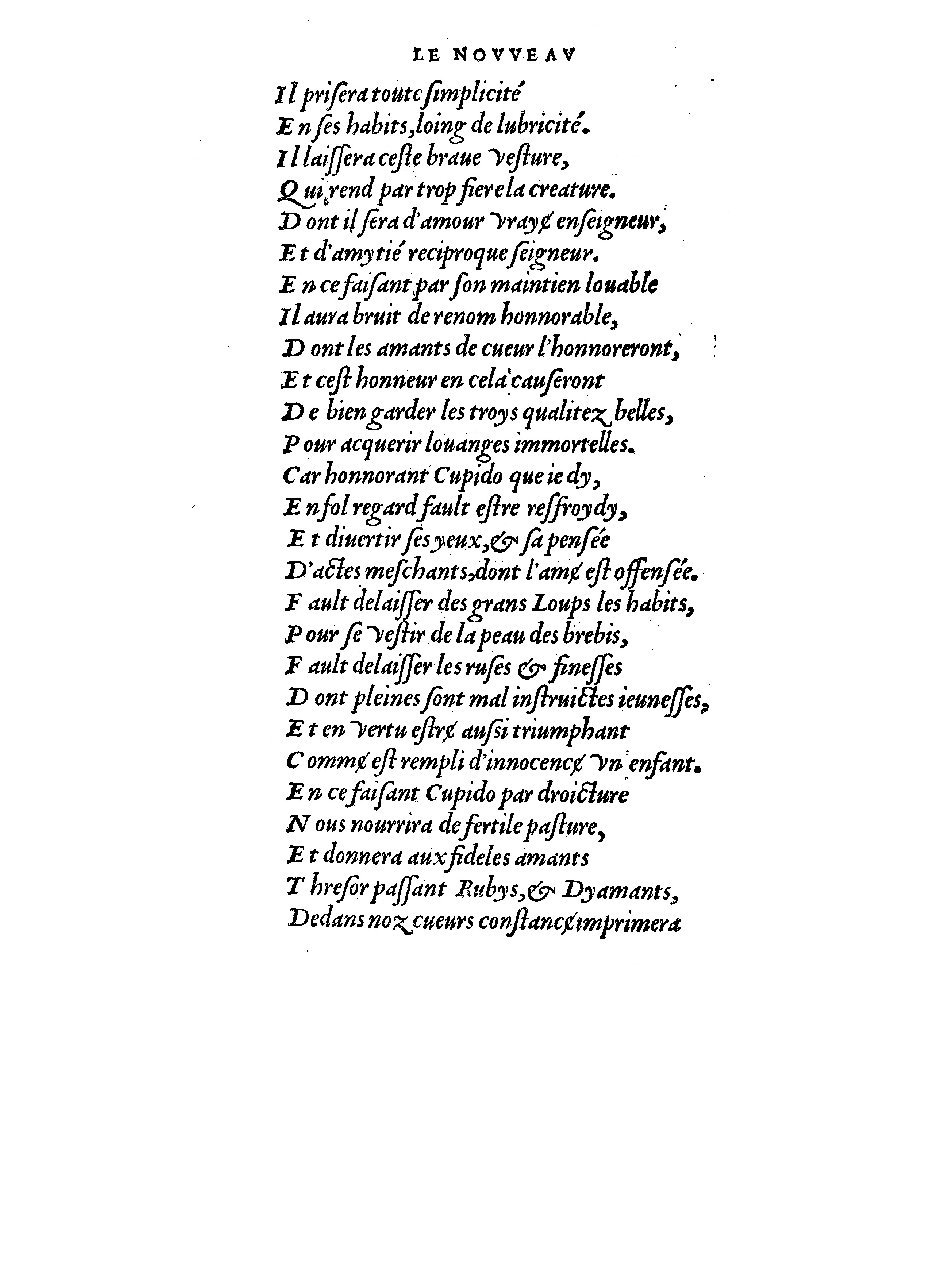 LE NOVVEAV
Il priſera toute ſimplicité
En ſes habits, loing de lubricité.
Il laiſſera ceſte braue veſture,
Qui rend par trop fiere la creature.
Dont il ſera d'amour vrayɇ enſeigneur,
Et d'amytié reciproque ſeigneur.
En ce faiſant par ſon maintien louable
Il aura bruit de renom honnorable,
Dont les amants de cueur l'honnoreront,
Et ceſt honneur en celà cauſeront
De bien garder les troys qualitez belles,
Pour acquerir louanges immortelles.
Car honnorant Cupido que ie dy,
En fol regard fault eſtre reffroydy,
Et diuertir ſes yeux, & ſa penſée
D'actes meſchants, dont l'amɇ eſt offenſée.
Fault delaiſſer des grans Loups les habits,
Pour ſe veſtir de la peau des brebis,
Fault delaiſſer les ruſes & fineſſes
Dont pleines ſont mal inſtruictes ieuneſſes,
Et en vertu eſtrɇ auſsi triumphant
Commɇ eſt rempli d'innocencɇ vn enfant.
En ce faiſant Cupido par droicture
Nous nourrira de fertile paſture,
Et donnera aux fideles amants
Threſor paſſant Rubys, & Dyamants,
Dedans noz cueurs conſtancɇ imprimera